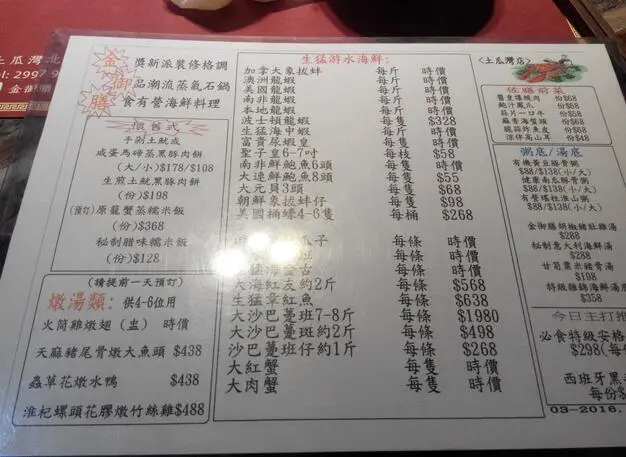 土瓜灣北
金御膳
金 獎新派裝修格調
御 品潮流蒸氣石鍋
膳 食有營海鮮料理
懷舊式
手剁土魷或
咸蛋馬碲蒸黑豚肉餅
(大/小)$178/$108
生煎土魷黑豚肉餅
(份)$198
(預訂)原籠蟹蒸糯米飯
(份)$368
秘制腊味糯米飯
(份)$128
(請提前一天預訂)
燉湯類: 供4-6位用
火筒雞燉翅(盅) 時價
天麻豬尾骨燉大魚頭 $438
蟲草花燉水鴨 $438
淮杞螺頭花膠燉竹絲雞$488
生猛游水海鮮:
加拿大象拔蚌 每斤 時價
澳洲龍蝦 每斤 時價
美國龍蝦 每斤 時價
南非龍蝦 每斤 時價
本地龍蝦 每斤 時價
波士頓龍蝦 每隻 $328
生猛海中蝦 每斤 時價
富貴尿蝦皇 每隻 時價
聖子皇6-7吋 每枝 $58
南非鮮鮑魚6頭 每隻 時價
大連鮮鮑魚8頭 每隻 $55
大元貝3頭 每隻 $68
朝鮮象拔蚌仔 每隻 $98
美國桶蠔4-6隻 每桶 $268
瓜子 每條 時價
每條 時價
每條 時價
大海紅友約2斤 每條 $568
生猛章紅魚 每條 $638
大沙巴躉班7-8斤 每條 $1980
大沙巴躉斑約2斤 每條 $498
沙巴躉班仔約1斤 每條 $268
大紅蟹 每隻 時價
大肉蟹 每隻 時價
<土瓜灣店>
佐膳前菜
份$68
鮑汁鳳爪 份$68
蒜片一口牛 份$58
麻香海蜇頭 份$58
脆蒜炸魚皮 份$68
涼伴高山耳 份$48
粥底/湯底
有機黃豆豚骨粥
$88/$138(小/大)
健康南瓜豚骨粥
$88/$138(小/大)
有營瑤柱淮山粥
$88/$138(小/大)
金御膳胡椒豬肚雞湯
$288
秘制意大利海鮮湯
$288
甘筍粟米豬骨湯
$198
特級雞錦海鮮湯
$358
今日主打推
必食特級安格
$298(每
西班牙黑
每份$
03-2016.